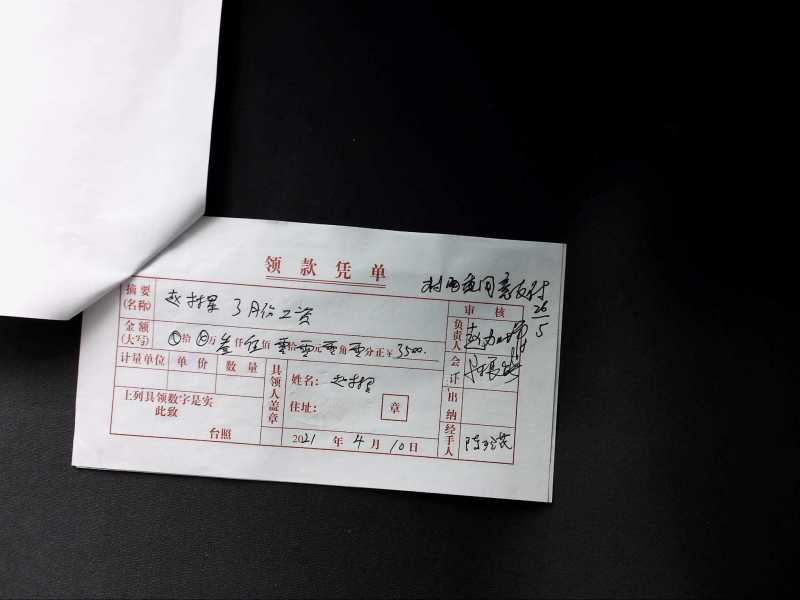 领款凭单
村两委同意支付
26/5
摘要(名称) 赵 3月份工资
审核
金额(大写) ⊗拾⊗万叁仟伍佰零拾零元零角零分正¥3500.
负责人
计量单位 单价 数量
具领人盖章
姓名: 赵
会计
住址: 章
出纳
上列具领数字是实
此致
台照
2021年4月10日
经手人 陈